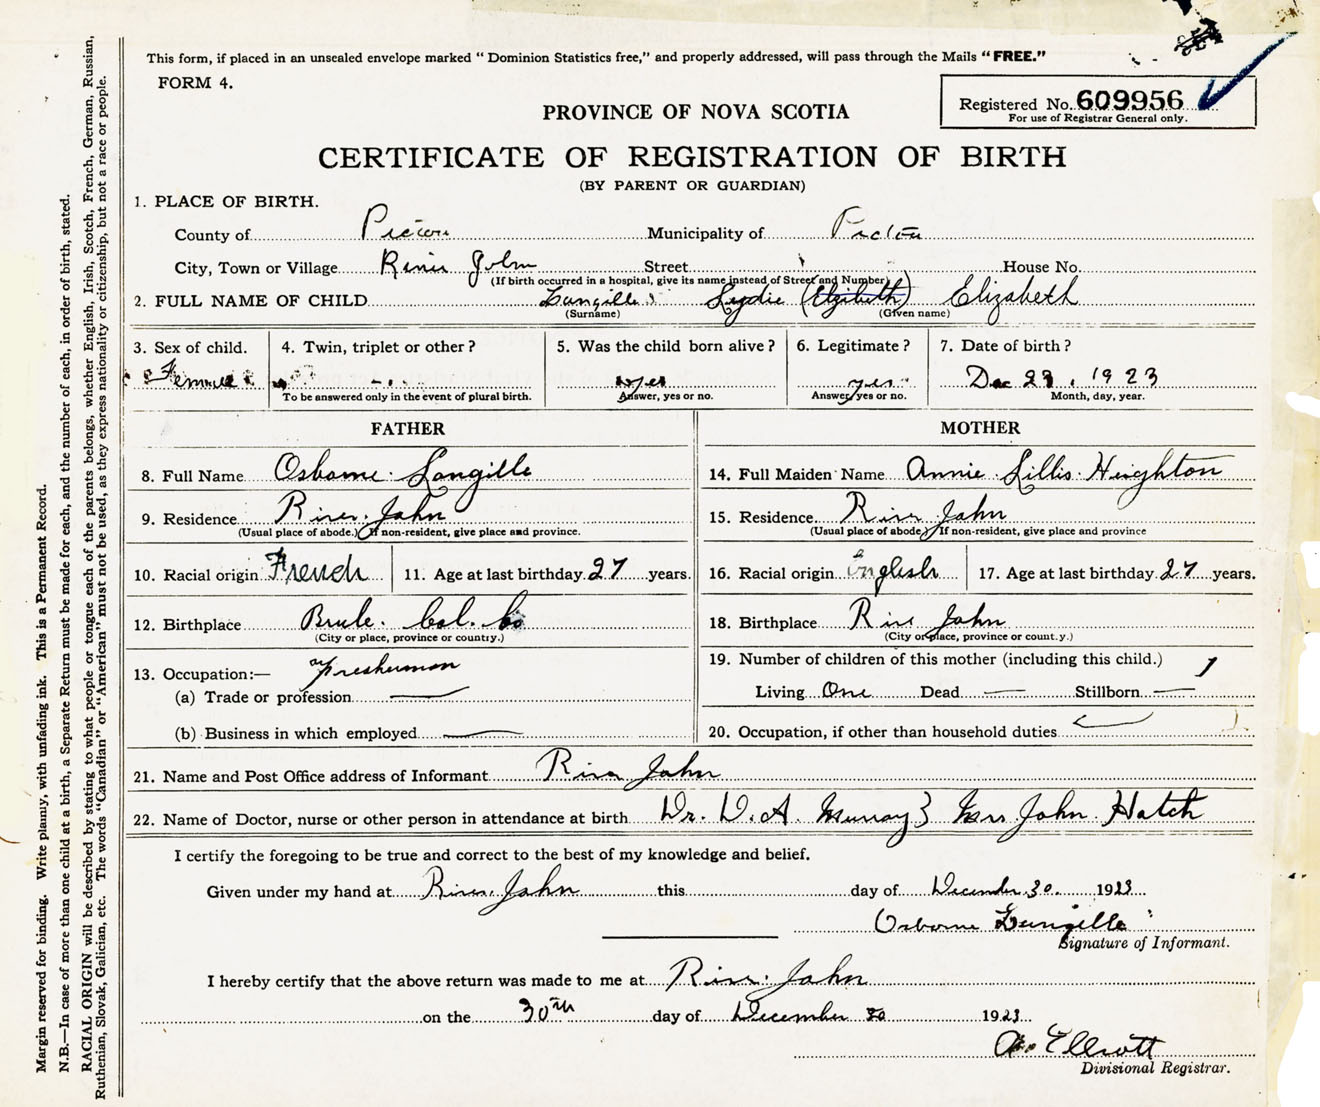 This form, if placed in an unsealed envelope marked “ Dominion Statistics free,” and properly addressed, will pass through the Mails “ FREE.”
FORM 4.
Registered No. 609956
For use of Registrar General only.
PROVINCE OF NOVA SCOTIA
CERTIFICATE OF REGISTRATION OF BIRTH
(BY PARENT OR GUARDIAN)
1. PLACE OF BIRTH.
County of Pictou Municipality of Pictou
City, Town or Village River John Street House No.
(If birth occurred in a hospital, give its name instead of Street and Number)
2. FULL NAME OF CHILD Langille Lydie (Elzibeth) Elizabeth
(Surname) (Given name)
3. Sex of child. 4. Twin, triplet or other ? 5. Was the child born alive ? 6. Legitimate ? 7. Date of birth ?
Female yes yes Dec 23, 1923
To be answered only in the event of plural birth. Answer, yes or no. Answer, yes or no. Month, day, year.
FATHER MOTHER
8. Full Name Osborne Langille 14. Full Maiden Name Annie Lillis Heighton
9. Residence River John 15. Residence River John
(Usual place of abode.) If non-resident, give place and province. (Usual place of abode) If non-resident, give place and province
10. Racial origin French 11. Age at last birthday 27 years. 16. Racial origin English 17. Age at last birthday 27 years.
12. Birthplace Brule. Col. Co 18. Birthplace River John
(City or place, province or country.) (City or place, province or count.y.)
13. Occupation:— 19. Number of children of this mother (including this child.) 1
(a) Trade or profession Living One Dead — Stillborn —
(b) Business in which employed 20. Occupation, if other than household duties
21. Name and Post Office address of Informant River John
22. Name of Doctor, nurse or other person in attendance at birth Dr. D.A. Murray } Mrs John Hatch
I certify the foregoing to be true and correct to the best of my knowledge and belief.
Given under my hand at River John this day of December 30 1923
Osborne Langille
Signature of Informant.
I hereby certify that the above return was made to me at River John
on the 30th day of December 30 1923
Elliott
Divisional Registrar.
Margin reserved for binding. Write plainly, with unfading ink. This is a Permanent Record.
N.B.—In case of more than one child at a birth, a Separate Return must be made for each, and the number of each, in order of birth, stated.
RACIAL ORIGIN will be described by stating to what people or tongue each of the parents belongs, whether English, Irish, Scotch, French, German, Russian,
Ruthenian, Slovak, Galician, etc. The words “Canadian” or “American” must not be used, as they express nationality or citizenship, but not a race or people.